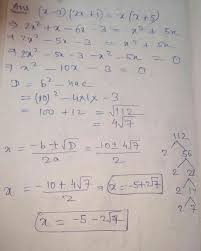 Ans (x-3)(2x+1) = x(x+5)
⇒ 2x² + x - 6x - 3 = x² + 5x
⇒ 2x² - 5x - 3 = x² + 5x
⇒ 2x² - 5x - 3 - x² - 5x = 0
⇒ x² - 10x - 3 = 0
D = b² - 4ac
= (10)² - 4x1x - 3
= 100 + 12 = √112
= 4√7
x = -b ± √D / 2a = 10 ± 4√7 / 2
x = -10 + 4√7 / 2 ⇒ x = -5+2√7
x = -5 - 2√7
112
2 56
2 28
2 14
2 7